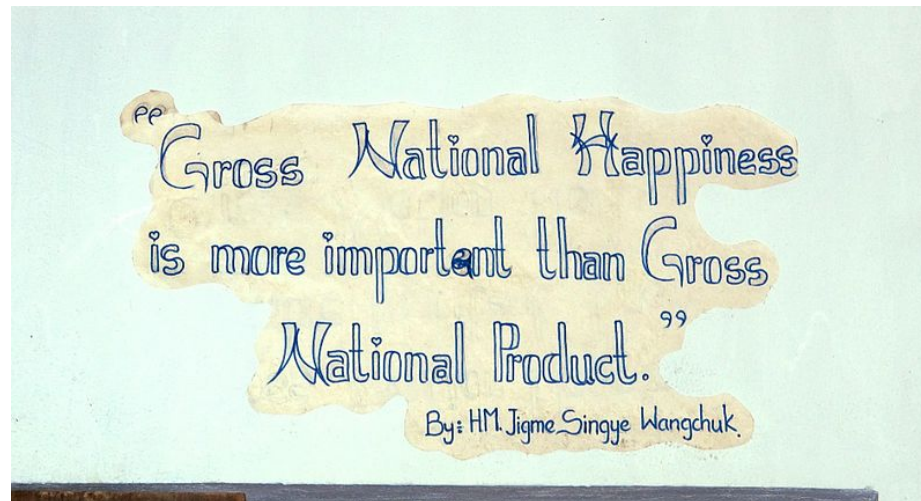 "Gross National Happiness
is more important than Gross
National Product."
By: HM. Jigme Singye Wangchuk.